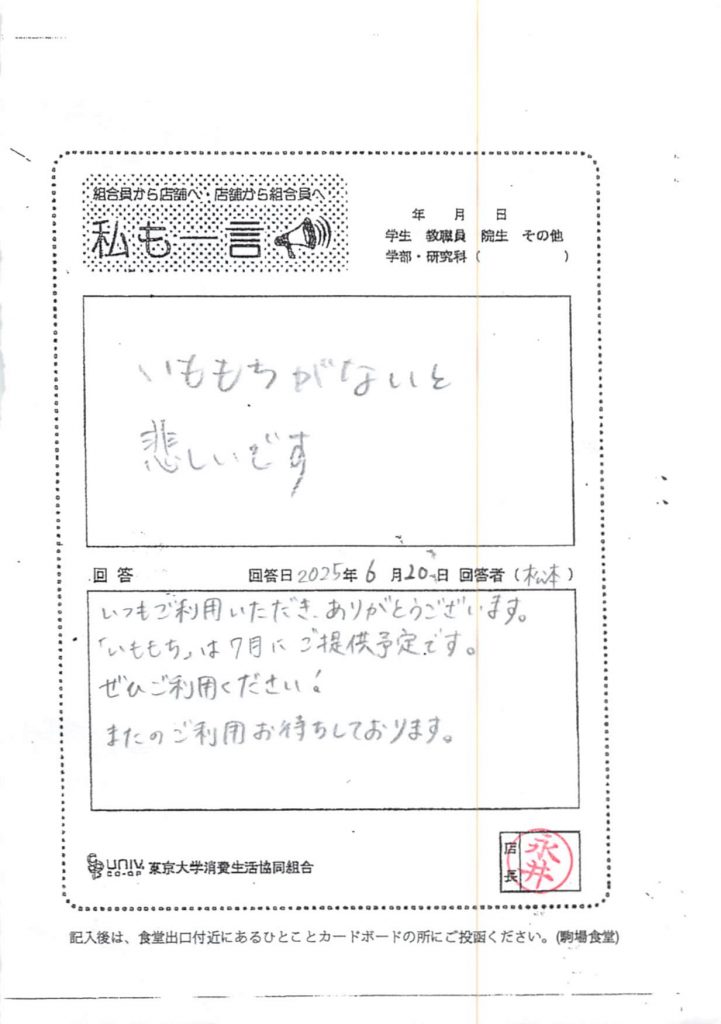 組合員から店舗へ・店舗から組合員へ
私も一言
年 月 日
学生 教職員 院生 その他
学部・研究科( )
いももちがないと
悲しいです
回答 回答日2025年6月20日 回答者(松本)
いつもご利用いただき、ありがとうございます。
「いももち」は7月にご提供予定です。
ぜひご利用ください!
またのご利用お待ちしております。
UNIV. CO-OP 東京大学消費生活協同組合
店長 永井
記入後は、食堂出口付近にあるひとことカードボードの所にご投函ください。(駒場食堂)